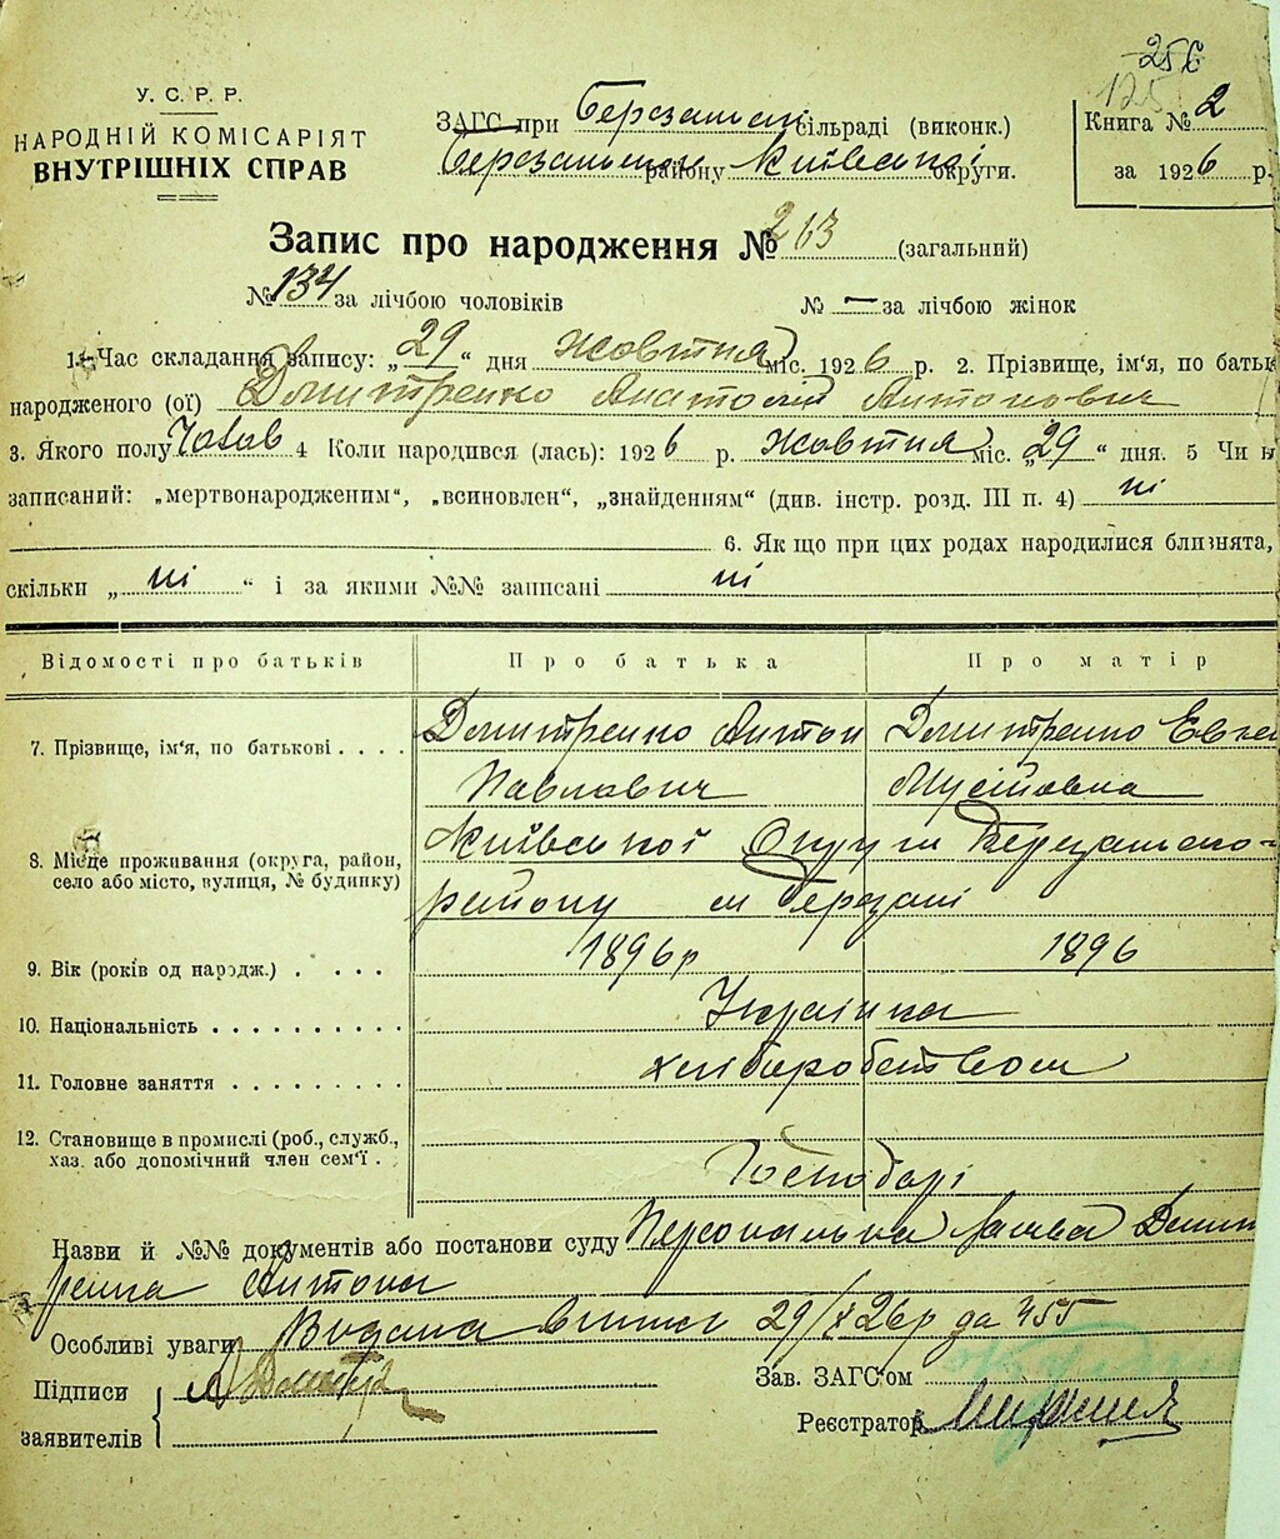 256
125
У. С. Р. Р.
НАРОДНІЙ КОМІСАРІЯТ
ВНУТРІШНІХ СПРАВ
ЗАГС при Березанськ сільраді (виконк.)
Березанськ району Київської округи.
Книга № 2
за 1926 р.
Запис про народження № 263 (загальний)
№ 134 за лічбою чоловіків
№ — за лічбою жінок
1. Час складання запису: „29“ дня Жовтня міс. 1926 р. 2. Прізвище, ім'я, по батьк
народженого (ої) Дмитренко Анатолій Антонович
3. Якого полу Чолов 4 Коли народився (лась): 1926 р. Жовтня міс. „29“ дня. 5 Чи н
записаний: „мертвонародженим“, „всиновлен“, „знайденням“ (див. інстр. розд. III п. 4) ні
6. Як що при цих родах народилися близнята,
скільки „ні“ і за якими №№ записані ні
Відомості про батьків Про батька Про матір
7. Прізвище, ім'я, по батькові . . . . Дмитренко Антон Дмитренко Евге
Павлович
8. Місце проживання (округа, район, Київської Округи Березансько-
село або місто, вулиця, № будинку) району м Березані
9. Вік (років од народж.) . . . . 1896р 1896
10. Національність . . . . . . . . . . Українка
11. Головне заняття . . . . . . . . . хліборобством
12. Становище в промислі (роб., служб.,
хаз. або допомічний член сем'ї . Господарі
Назви й №№ документів або постанови суду Персональна заява Дмит
ренка Антона
Особливі уваги Видана випис 29/X 26р за 455
Підписи А Дмитр
заявителів
Зав. ЗАГС'ом
Реєстратор